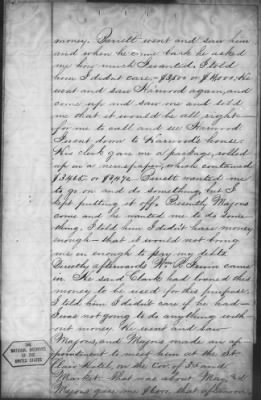 money. Barrett went and saw him
and when he came back he asked
me how much I wanted. I told
him I didn't care, $3500 or $4000. He
went and saw Harwood again, and
came up and saw me and told
me that it would be all right
for me to call and see Harwood
I went down to Harwood's house.
His clerk gave me a package, rolled
up in a newspaper, which contained
or Barrett wanted me
to go on and do something, but I
kept putting it off. Presently Majors
came and he wanted me to do some
thing. I told him I didn't have money
enough - that it would not bring
me in enough to pay my debts
Directly afterwards Wm. R. came
in. He said Clark had loaned the
money to be used for this purpose.
I told him I didn't care if he had -
I was not going to do anything with
out money. He went and saw
Majors, and Majors made an ap
pointment to meet him at the St.
Clair Hotel, on the cor of 3d and
Market. That was about May 3d
Majors gave me that afternoon
THE
NATIONAL ARCHIVES
OF THE
UNITED STATES